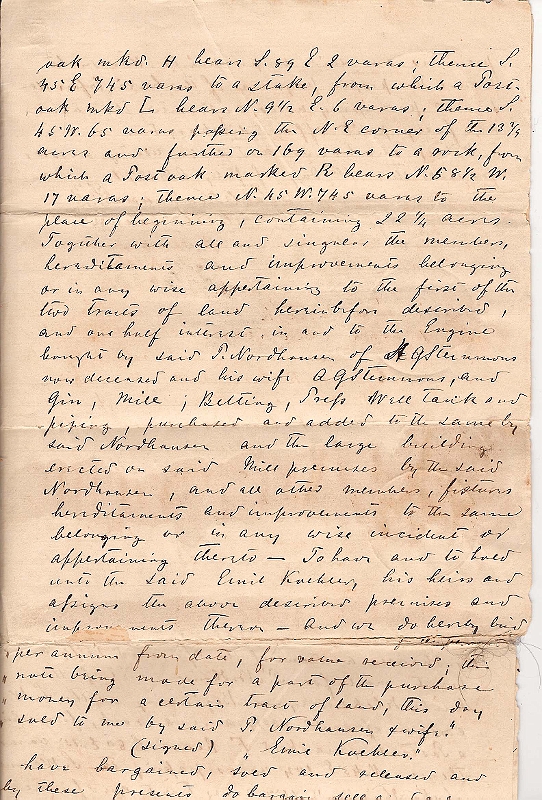 oak mkd. H bears S. 89 E 2 varas; thence S.
45 E 745 varas to a stake, from which a Post
oak mkd L bears N. 9 1/2 E. 6 varas; thence S.
45 W. 65 varas passing the N.E corner of the 13 3/4
acres and further on 169 varas to a rock, from
which a Post oak marked R bears N. 58 1/2 W.
17 varas; thence N. 45 W. 745 varas to the
place of beginning, containing 22 1/4 acres.
Together with all and singular the members,
hereditaments and improvements belonging
or in any wise appertaining to the first of the
two tracts of land hereinbefore described,
and one half interest in and to the Engine
bought by said P. Nordhausen of
now deceased and his wife and
Gin, Mill, Belting, Press Well Tank and
piping, purchased and added to the same by
said Nordhausen and the large building
erected on said Mill premises by the said
Nordhausen, and all other members, fixtures
hereditaments and improvements to the same
belonging or in any wise incident or
appertaining thereto — To have and to hold
unto the said Emil Kuehler, his heirs and
assigns the above described premises and
improvements thereon — and we do hereby bind
per annum from date, for value received; this
note being made for a part of the purchase
money for a certain tract of land, this day
sold to me by said P. Nordhausen & wife."
(signed) "Emil Kuehler."
have bargained, sold and released and
by these presents do bargain, sell and